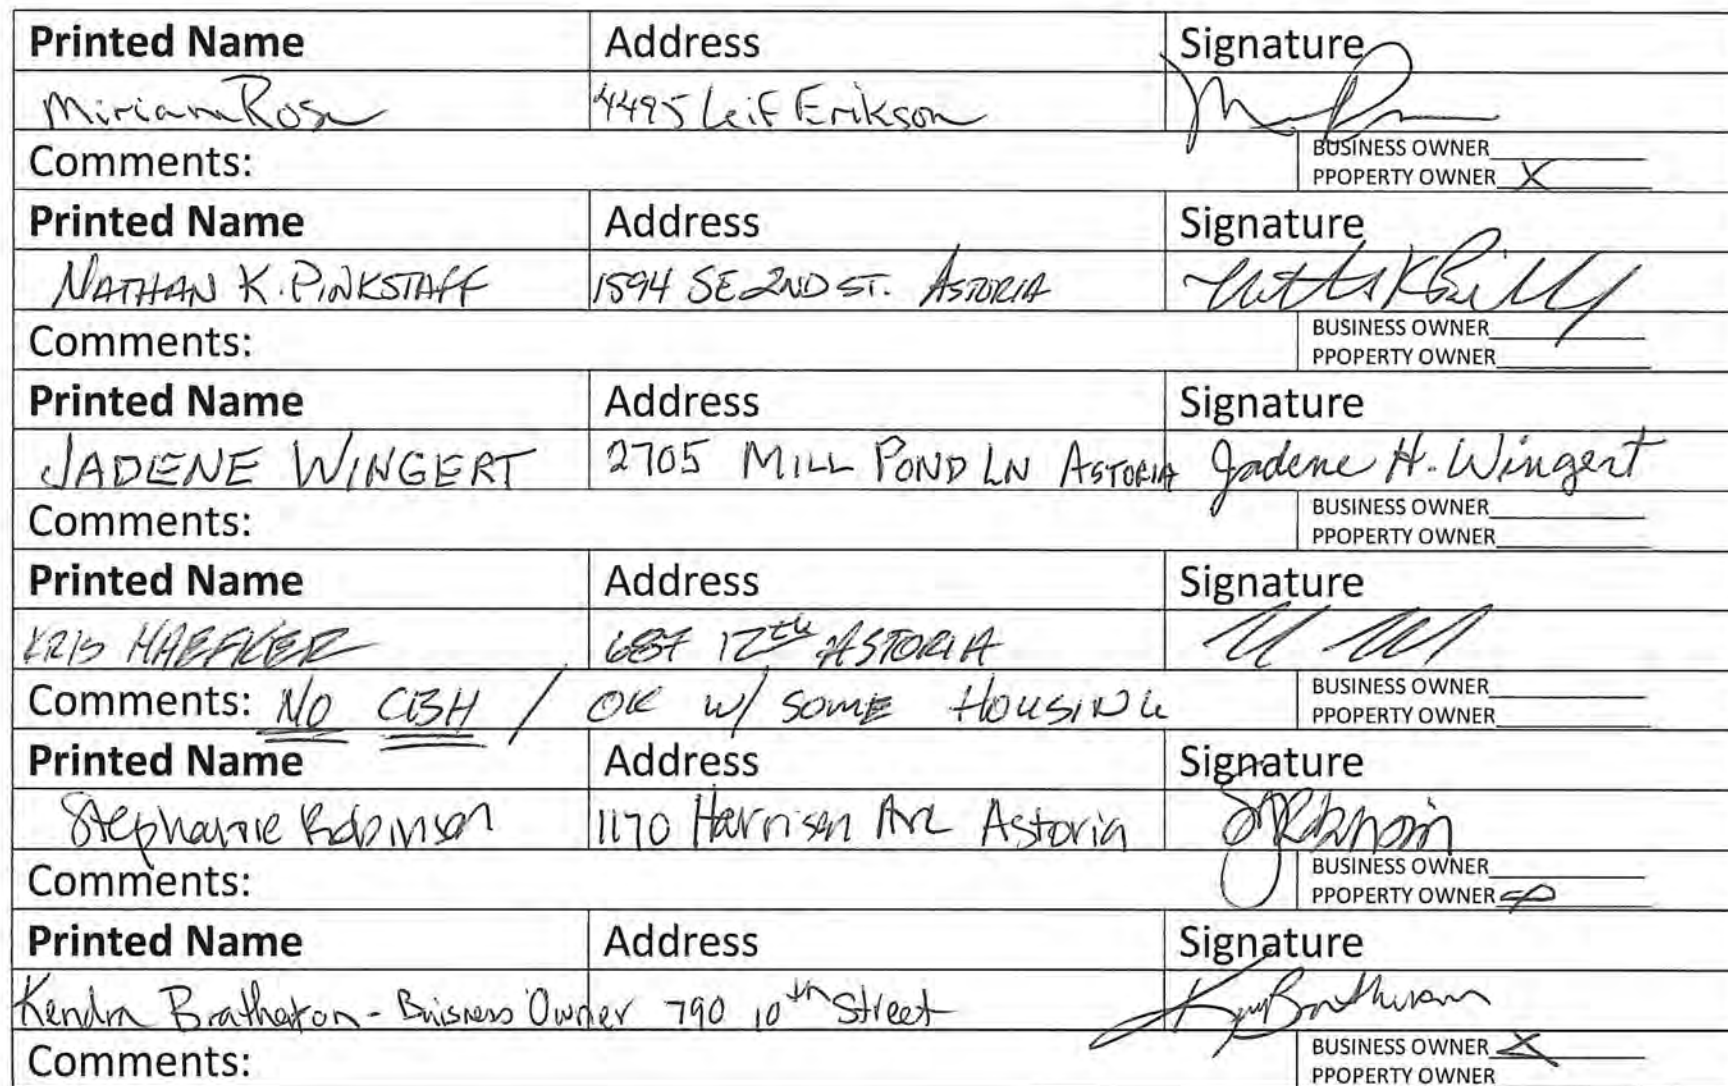 Printed Name Address Signature
Miriam Rose 4495 Leif Erikson
BUSINESS OWNER
Comments: PPOPERTY OWNER X
Printed Name Address Signature
NATHAN K. PINKSTAFF 1594 SE 2ND ST. ASTORIA
BUSINESS OWNER
Comments: PPOPERTY OWNER
Printed Name Address Signature
JADENE WINGERT 2705 MILL POND LN ASTORIA Jadene H. Wingert
BUSINESS OWNER
Comments: PPOPERTY OWNER
Printed Name Address Signature
KRIS HAEFKER 687 12th ASTORIA
BUSINESS OWNER
Comments: NO CBH / OK w/ SOME HOUSING PPOPERTY OWNER
Printed Name Address Signature
Stephanie Robinson 1170 Harrison Ave Astoria
BUSINESS OWNER
Comments: PPOPERTY OWNER
Printed Name Address Signature
Kendra Bratherton - Buisness Owner 790 10th Street
BUSINESS OWNER X
Comments: PPOPERTY OWNER